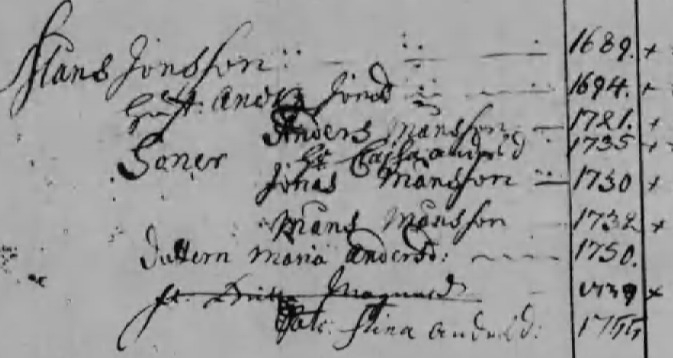 Måns Jonsson 1689. +
Hust. Jonsd 1694. +
Söner Anders Månsson 1721. +
H. Cajsa andersd 1735 +
Jonas Månsson 1730 +
Måns Månsson 1732 +
Dottern Maria Andersd: 1750.
1739 +
Stina Andersd: 1755